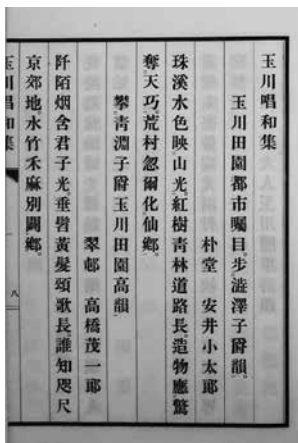 玉川唱和集
玉川田園都市矚目。步澁澤子爵韻。
朴堂　安井小太郎
珠溪水色映山光。紅樹靑林道路長。造物應驚
奪天巧。荒村忽爾化仙鄕。
攀靑淵子爵玉川田園高韻。
翠邨　高橋茂一郎
阡陌烟含君子光。垂髫黃髮頌歌長。誰知咫尺
京郊地。水竹禾麻別闢鄕。
玉川唱和集
八